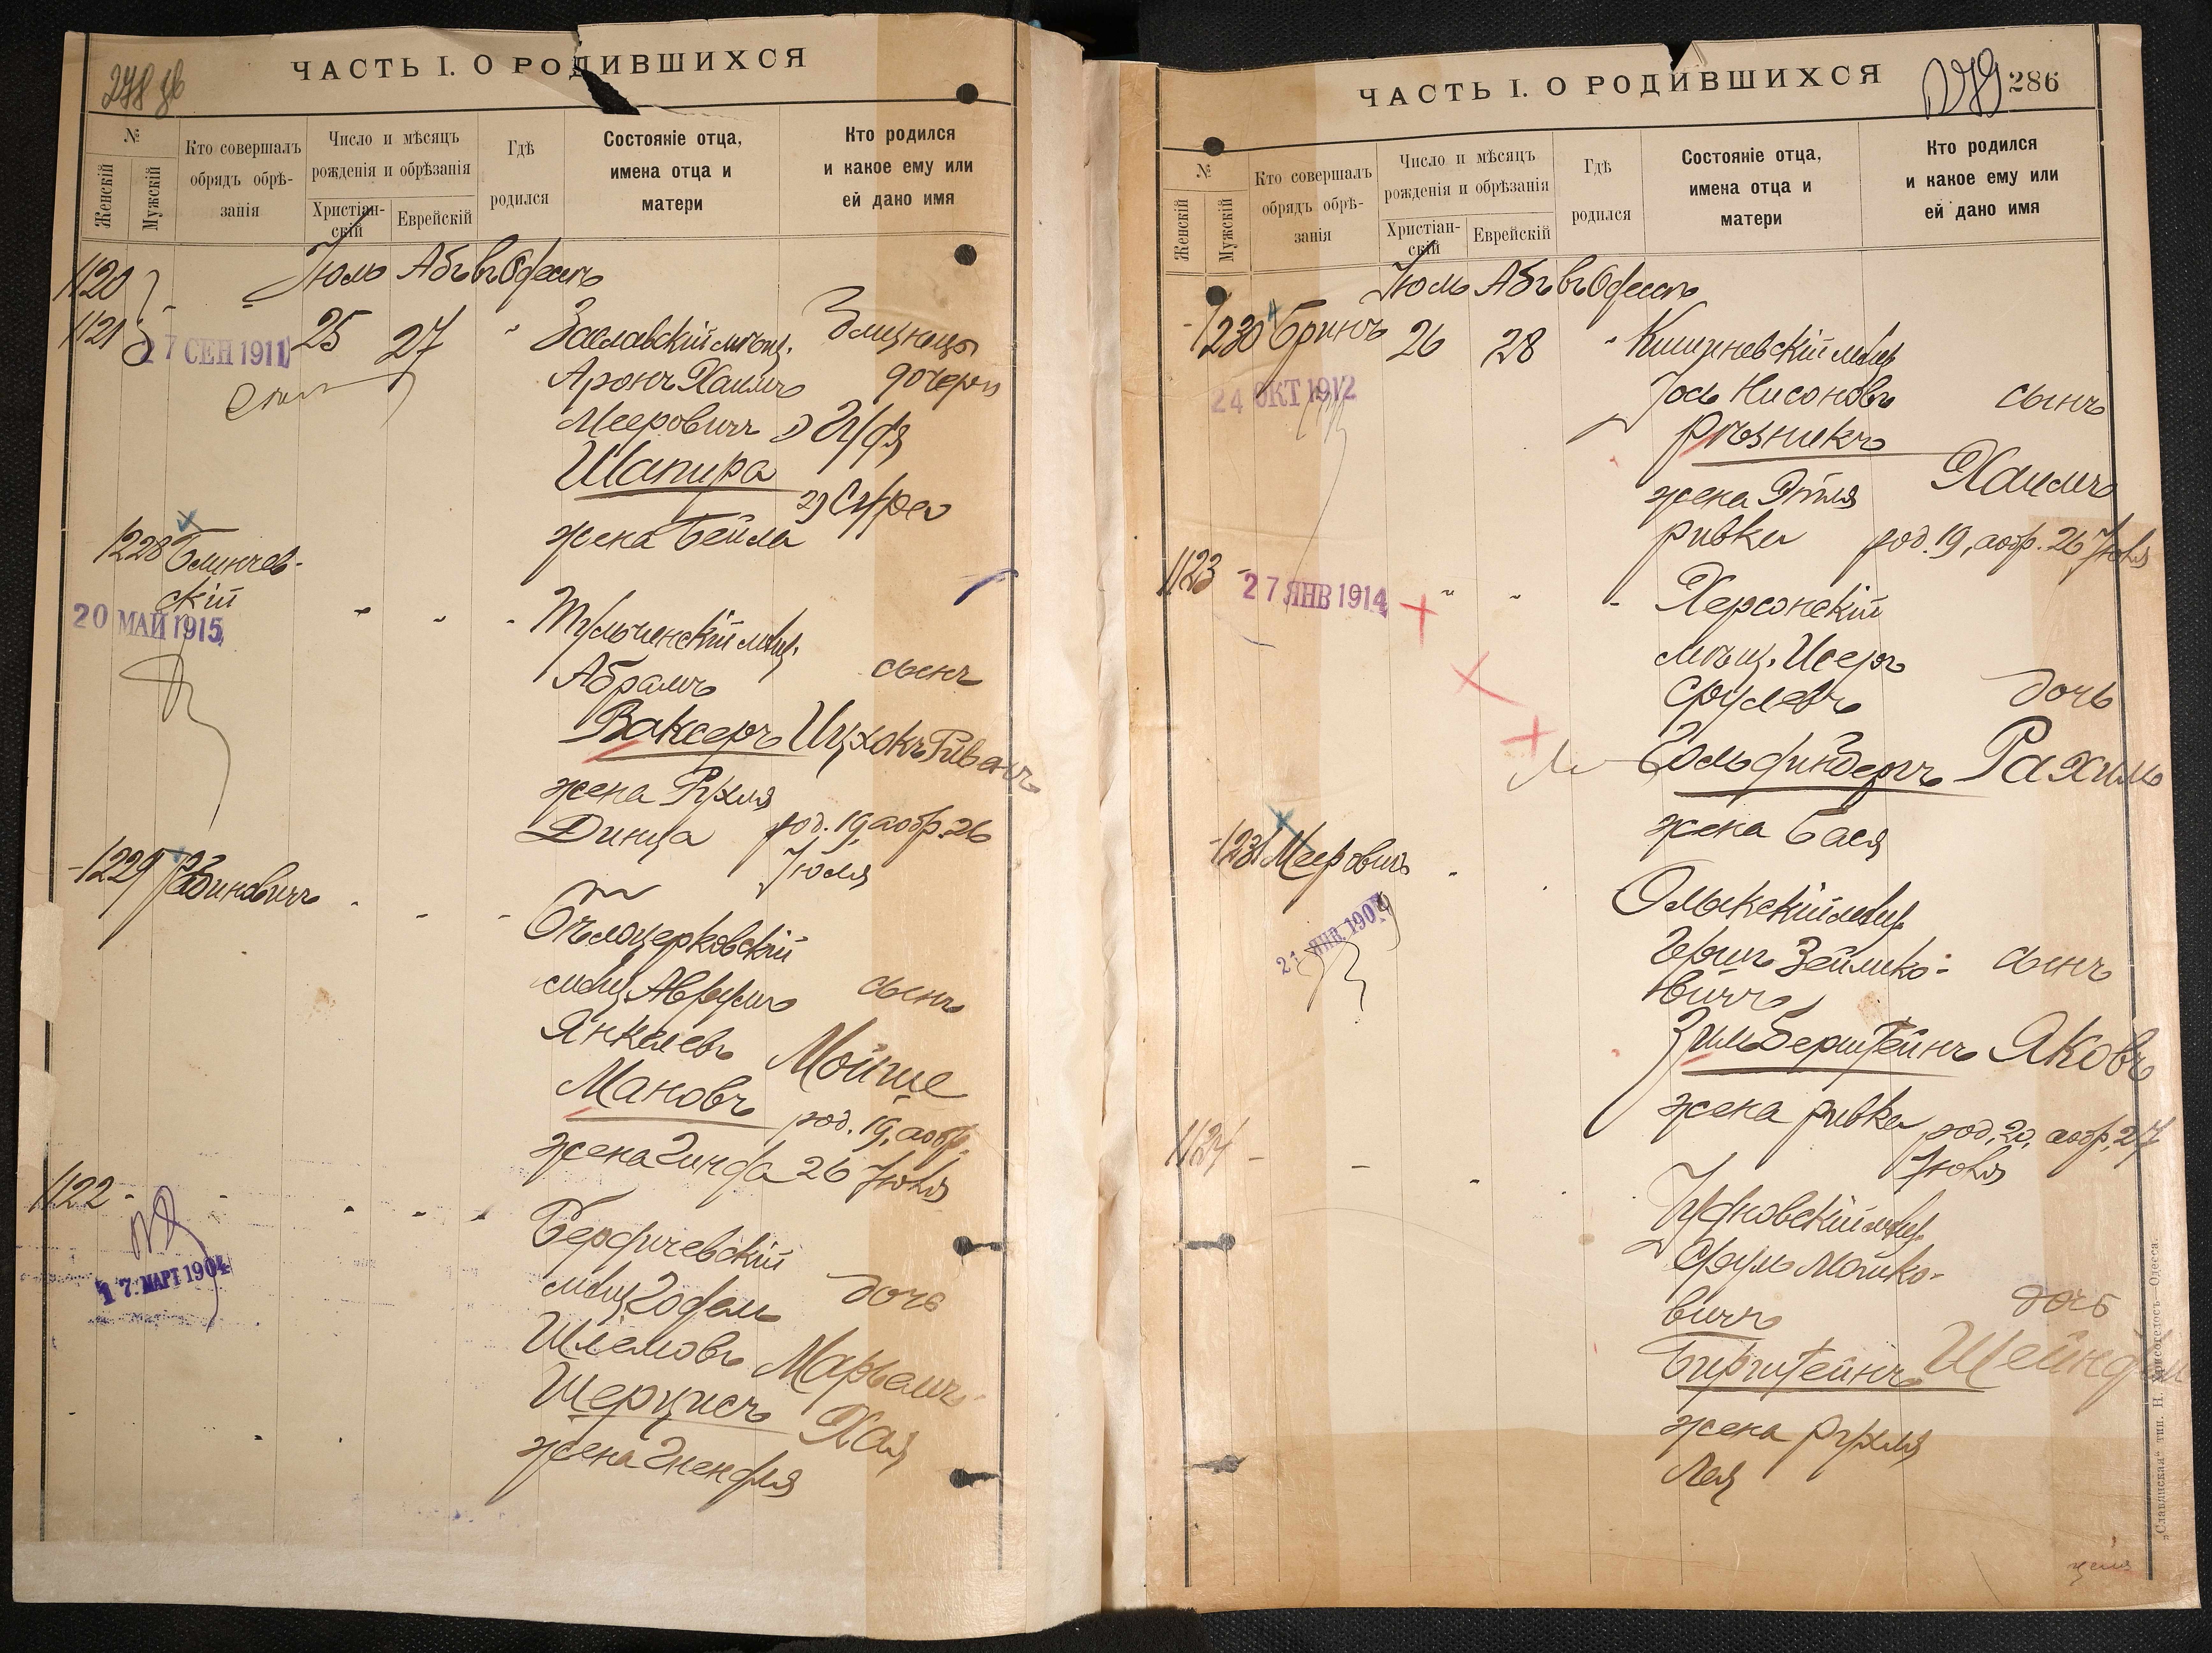 ЧАСТЬ I. О РОДИВШИХСЯ
№
Женскій
Мужскій
Кто совершалъ
обрядъ обрѣ-
занія
Число и мѣсяцъ
рожденія и обрѣзанія
Христіан-
скій
Еврейскій
Гдѣ
родился
Состояніе отца,
имена отца и
матери
Кто родился
и какое ему или
ей дано имя
Іюль Абъ въ Одессѣ
1120
1121
17 СЕН 1911
25
27
Заславскій мѣщ.
Аронъ Хаимъ
Мееровичъ
Шапира
жена Бейла
Близнецы
дочери
2) Сура
1228
Блинчев-
скій
20 МАЙ 1915
Тульчинскій мѣщ.
Абрамъ
Ваксеръ
жена Рухля
Динца
сынъ
Ицхокъ Рувенъ
род. 19, а обр. 26
Іюля
1229
Рабиновичъ
Бѣлоцерковскій
мѣщ. Аврумъ
Янкелевъ
Мановъ
жена Гинда
сынъ
Мойше
род. 19, а обр.
26 Іюля
1122
17 МАРТ 1904
Бердичевскій
мѣщ. Годель
Шлемовъ
Шерцисъ
жена Гнендля
дочь
Марьемъ
Хая
ЧАСТЬ I. О РОДИВШИХСЯ
279
286
№
Женскій
Мужскій
Кто совершалъ
обрядъ обрѣ-
занія
Число и мѣсяцъ
рожденія и обрѣзанія
Христіан-
скій
Еврейскій
Гдѣ
родился
Состояніе отца,
имена отца и
матери
Кто родился
и какое ему или
ей дано имя
Іюль Абъ въ Одессѣ
1230
Бринъ
24 ОКТ 1912
26
28
Кишиневскій мѣщ.
Іось Нисоновъ
Рѣзникъ
жена Этля
Ривка
сынъ
Хаимъ
род. 19, а обр. 26 Іюля
1123
27 ЯНВ 1914
Херсонскій
мѣщ. Исеръ
Срулевъ
Гольфинберъ
жена Бася
дочь
Рахиль
1231
Мееровичъ
21 ЯНВ 1909
Олыкскій мѣщ.
Герш Зейлико-
вичъ
Зильберштейнъ
жена Ривка
сынъ
Яковъ
род. 20, а обр. 27
Іюля
1124
Чудновскій мѣщ.
Сруль Мошко-
вичъ
Бирштейнъ
жена Рухля
Лея
дочь
Шейндля
„Славянская“ тип. Н. Хрисогелосъ—Одесса.